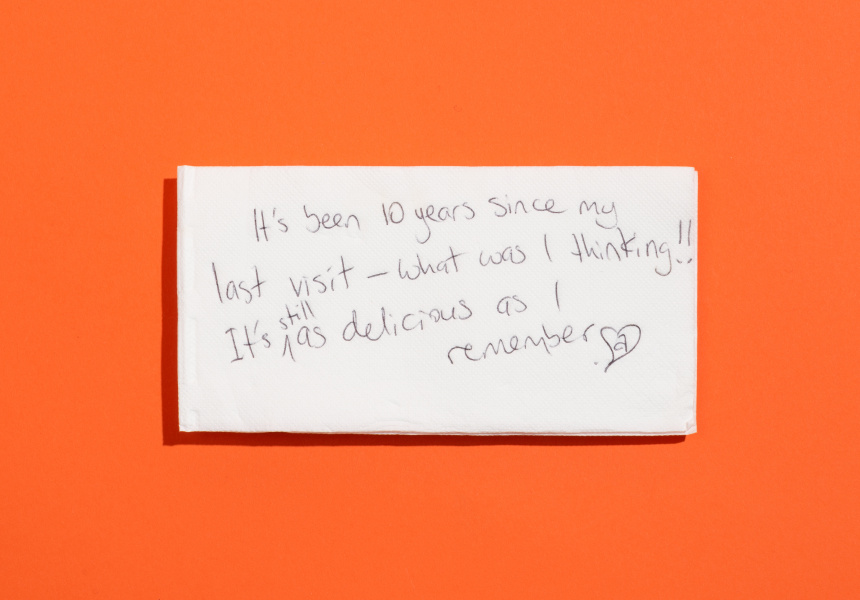 It's been 10 years since my
last visit – what was I thinking!!
It's still as delicious as I
remember